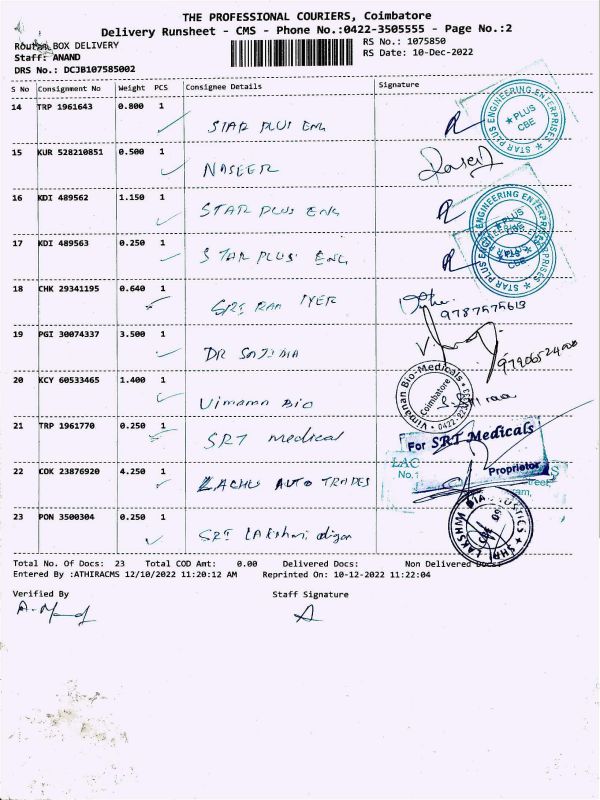 THE PROFESSIONAL COURIERS, Coimbatore
Delivery Runsheet - CMS - Phone No.:0422-3505555 - Page No.:2
BOX DELIVERY
RS No.: 1075850
Staff: ANAND
RS Date: 10-Dec-2022
DRS No.: DCJB107585002
S No Consignment No Weight PCS Consignee Details Signature
14 TRP 1961643 0.800 1 STAR PLUS ENG
STAR PLUS ENGINEERING ENTERPRISES ★ PLUS CBE
15 KUR 528210851 0.500 1 NASEER
16 KDI 489562 1.150 1 STAR PLUS ENG
STAR PLUS ENGINEERING ENTERPRISES ★ PLUS CBE
17 KDI 489563 0.250 1 STAR PLUS ENG
STAR PLUS ENGINEERING ENTERPRISES ★ PLUS CBE
18 CHK 29341195 0.640 1 SRI RAM IYER
9787575613
19 PGI 30074337 3.500 1 DR
20 KCY 60533465 1.400 1 Vimana BIO
Vimanan Bio-Medicals Coimbatore
21 TRP 1961770 0.250 1 SRT medical
For SRT Medicals
Proprietor
22 COK 23876920 4.250 1 LACHU AUTO TRADES
LAC
No.:
23 PON 3500304 0.250 1 SRI LAKshmi
SHRI LAKSHMI DIAGNOSTICS CBE
Total No. Of Docs: 23 Total COD Amt: 0.00 Delivered Docs: Non Delivered Docs:
Entered By :ATHIRACMS 12/10/2022 11:20:12 AM Reprinted On: 10-12-2022 11:22:04
Verified By Staff Signature